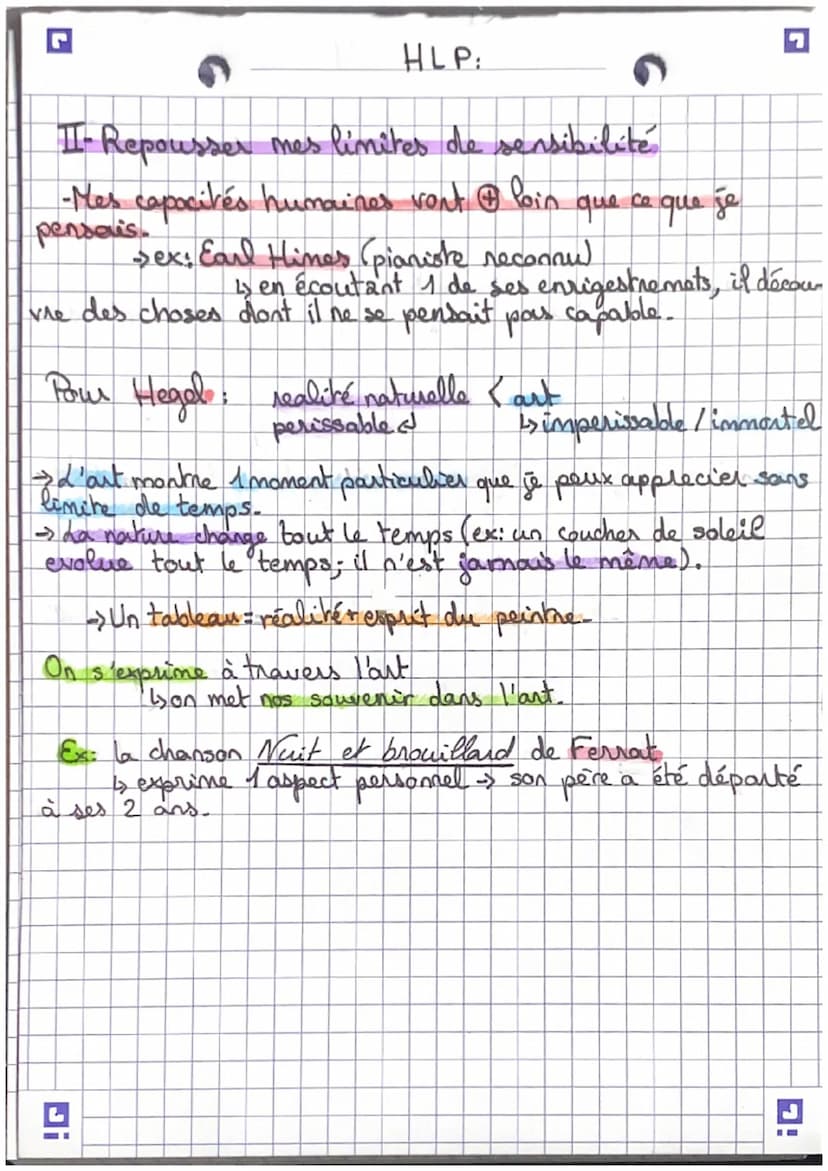 HLP:
II- Repousser mes limites de sensibilité
-Mes capacités humaines vont ⊕ loin que ce que je
pensais.
→ex: Earl Himes (pianiste reconnu)
↳ en écoutant 1 de ses enrigestremats, il décou-
vre des choses dont il ne se pensait pas capable.
Pour Hegel: realité naturelle < art
perissable ↲ ↳ imperissable / immortel
→ L'art montre 1 moment particulier que je peux apprecier sans
limite de temps.
→ La nature change tout le temps (ex: un coucher de soleil
evolue tout le temps; il n'est jamais le même).
→ Un tableau = réalité + esprit du peintre.
On s'exprime à travers l'art
↳ on met nos souvenir dans l'art.
Ex: la chanson Nuit et brouillard de Ferrat
↳ exprime 1 aspect personnel → son père a été déporté
à ses 2 ans.